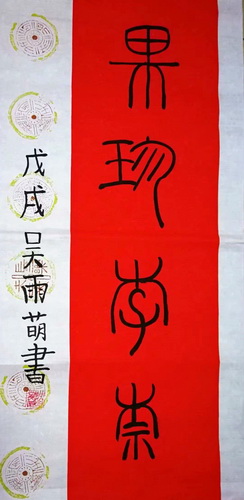 果珍李柰
戊戌吴雨萌書